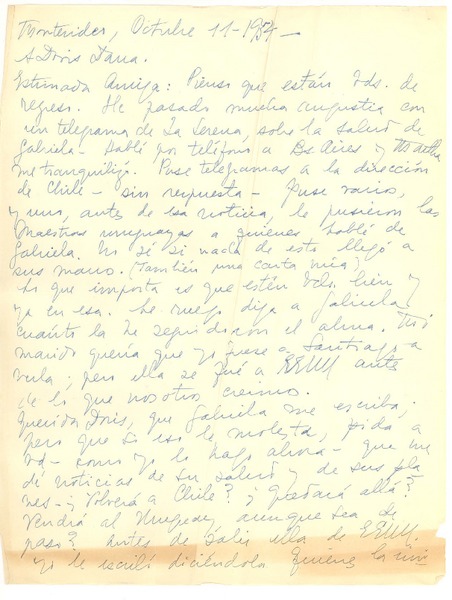 Montevideo, Octubre 11-1954-
A Doris Dana.
Estimada Amiga: Pienso que están Uds. de
regreso. He pasado mucha angustia con
un telegrama de La Serena, sobre la salud de
Gabriela. Hablé por teléfono a Bs Aires y Martha
me tranquilizó. Puse telegramas a la dirección
de Chile - sin respuesta - Puse varios,
y uno, antes de esa noticia, le pusieron las
Maestras uruguayas a quienes hablé de
Gabriela. No sé si nada de esto llegó a
sus manos. (También una carta mía)
Lo que importa es que estén Uds. bien y
ya en esa. Le ruego diga a Gabriela
cuánto la he seguido con el alma. Mi
marido quería que yo fuese a Santiago a
verla; pero ella se fué a EEUU antes
de lo que nosotros creimos.
Querida Doris, que Gabriela me escriba;
pero que si eso le molesta, pida a
Ud - como yo lo hago ahora - que me
dé noticias de su salud y de sus pla
nes - ¿Volverá a Chile? ¿Quedará allá?
Vendrá al Uruguay, aunque sea de
paso? Antes de salir ella de EEUU.
yo le escribí diciéndole quienes la